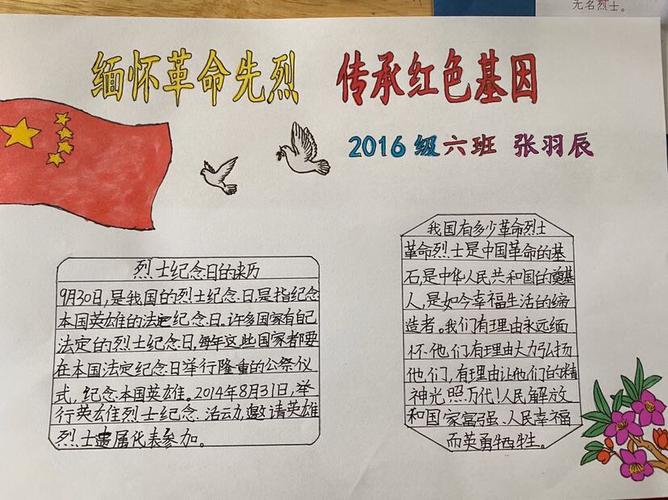 无名烈士。
缅怀革命先烈 传承红色基因
2016级六班 张羽辰
烈士纪念日的来历
9月30日,是我国的烈士纪念日,是指纪念
本国英雄的法定纪念日。许多国家有自己
法定的烈士纪念日,每年这些国家都要
在本国法定纪念日举行隆重的公祭仪
式,纪念本国英雄。2014年8月31日,举
行英雄烈士纪念活动,邀请英雄
烈士遗属代表参加。
我国有多少革命烈士
革命烈士是中国革命的基
石,是中华人民共和国的奠基
人,是如今幸福生活的缔
造者。我们有理由永远缅
怀他们,有理由大力弘扬
他们,有理由让他们的精
神光照万代!人民解放
和国家富强、人民幸福
而英勇牺牲。